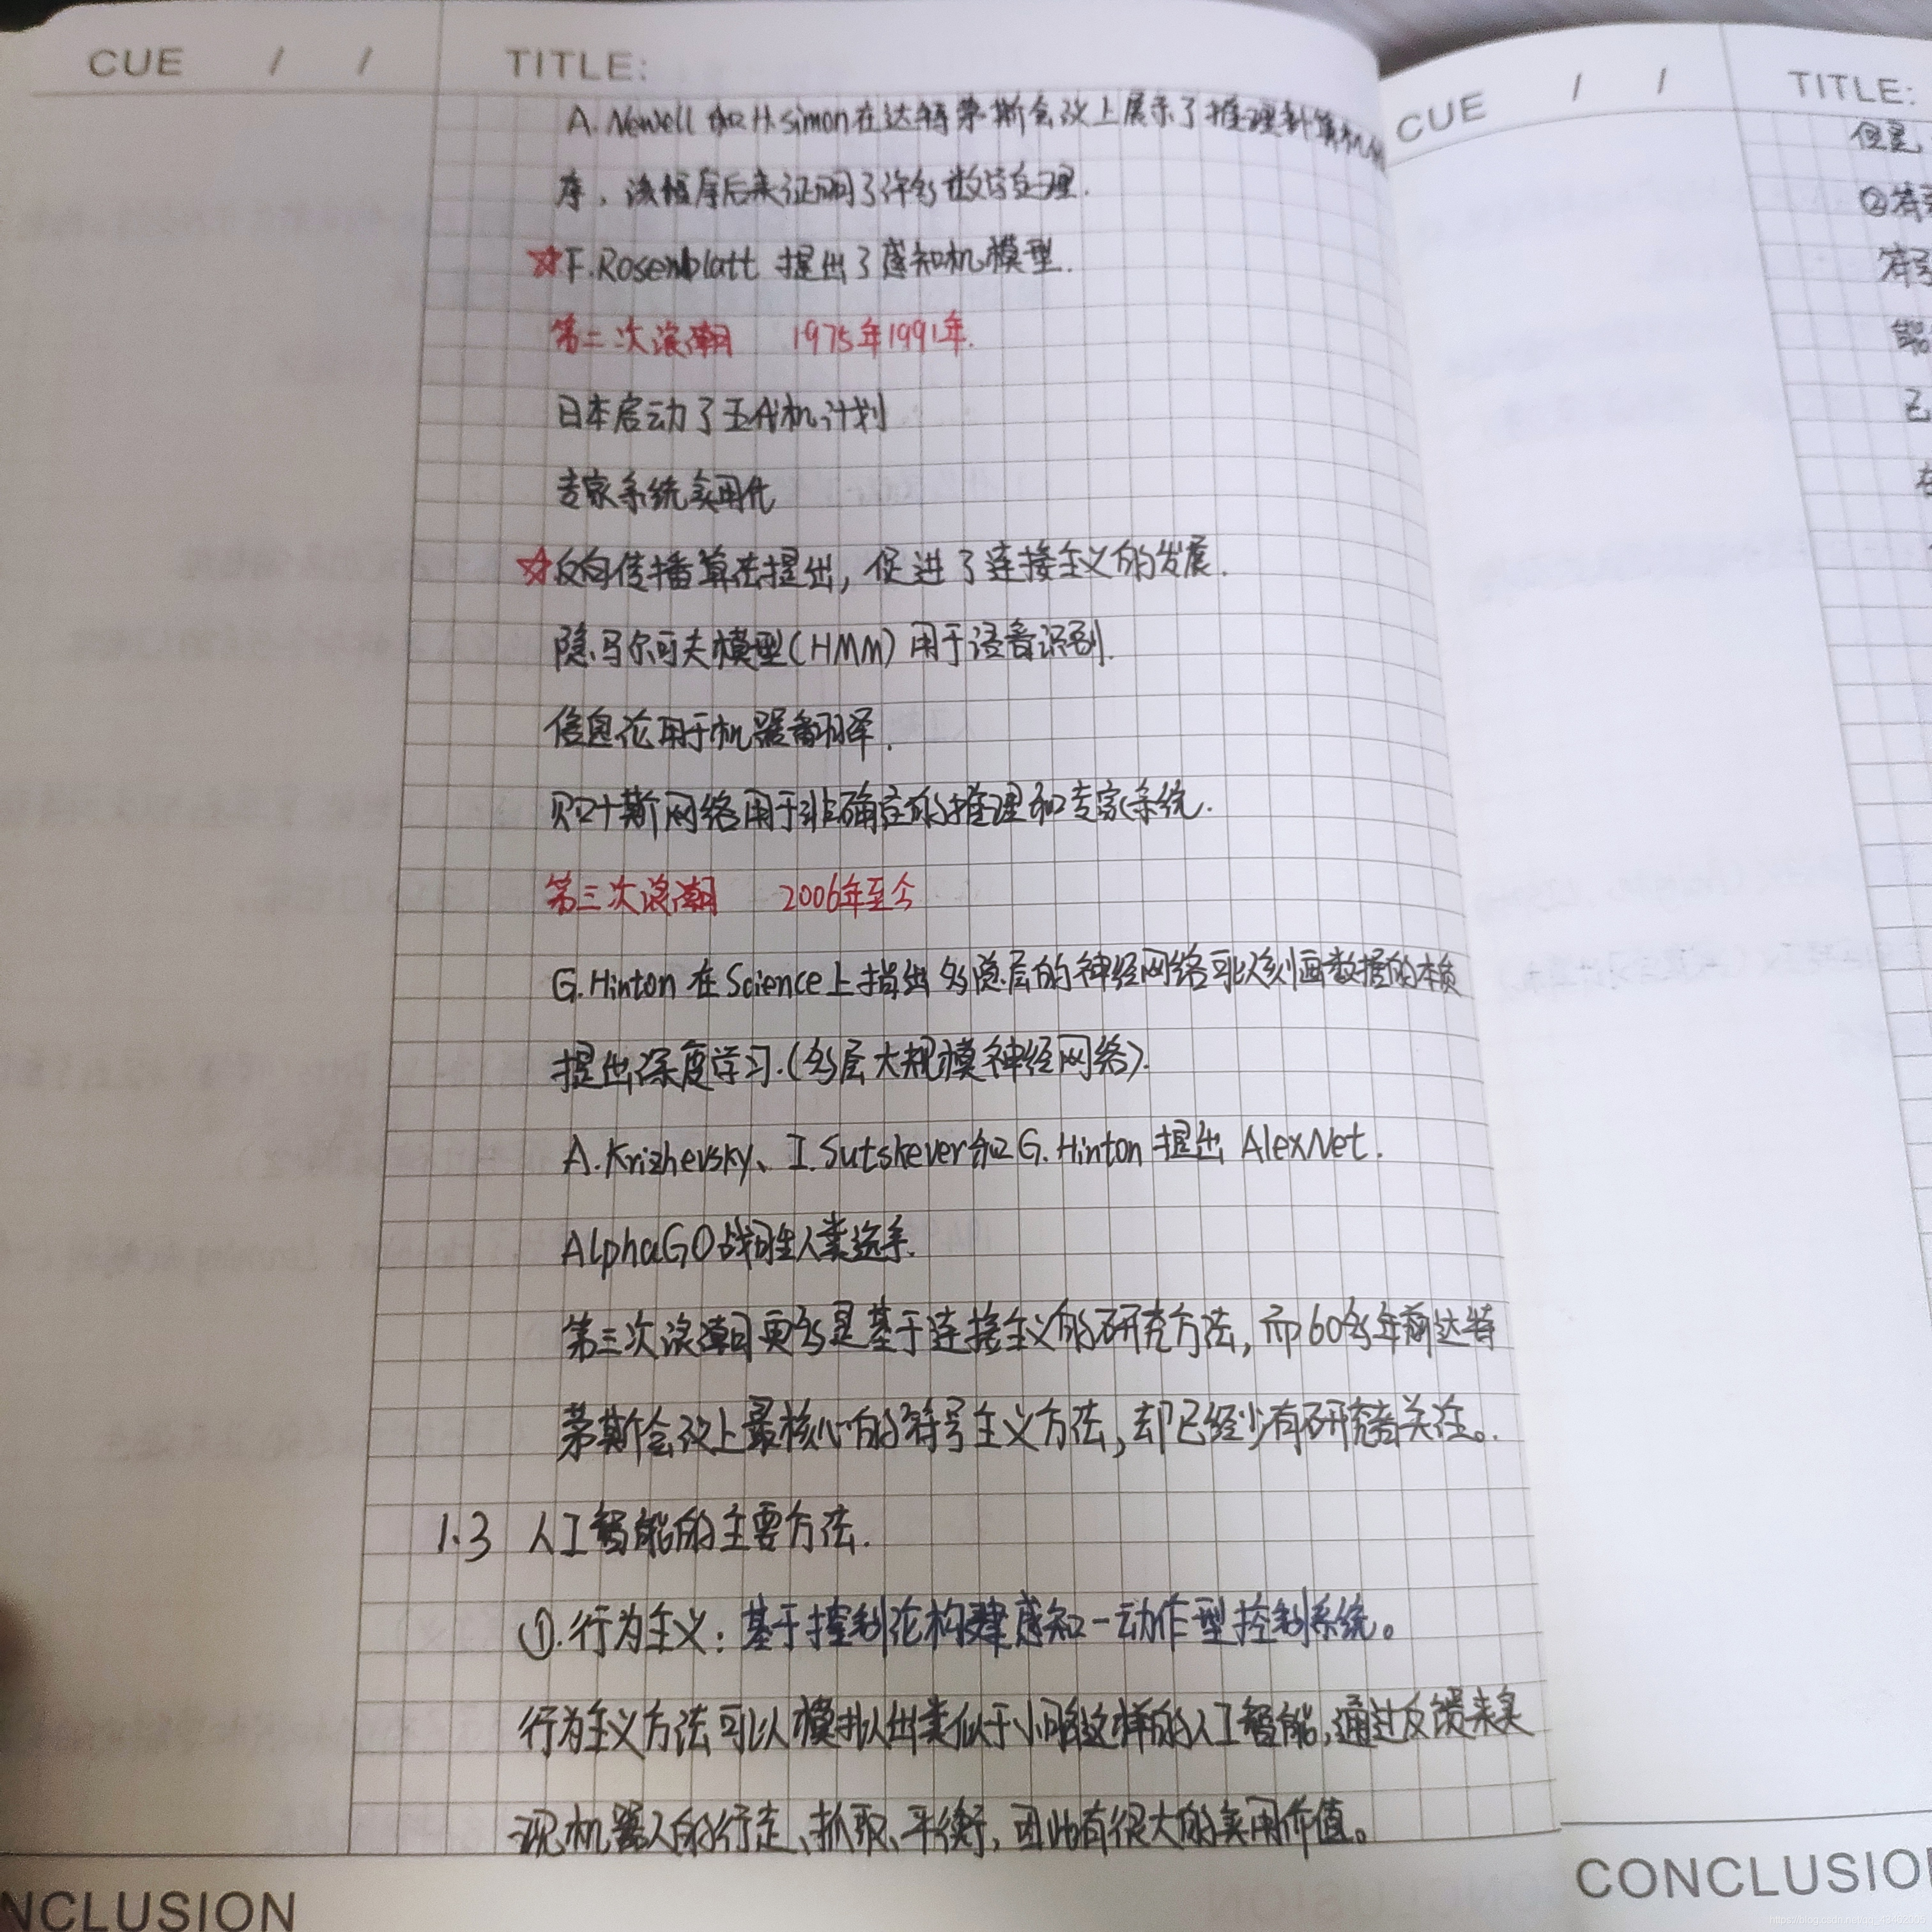 CUE / /
TITLE:
A. Newell 和 H. simon 在达特茅斯会议上展示了推理计算机
序，该程序后来证明了许多数学定理.
☆F.Rosenblatt 提出了感知机模型.
第二次浪潮 1975年1991年.
日本启动了五代机计划
专家系统实用化
☆反向传播算法提出，促进了连接主义的发展.
隐马尔可夫模型(HMM)用于语音识别.
信息论用于机器翻译.
贝叶斯网络用于非确定的推理和专家系统.
第三次浪潮 2006年至今
G.Hinton 在 Science 上指出多隐层的神经网络可以刻画数据的本质
提出深度学习.(多层大规模神经网络).
A.Krizhevsky、I.Sutskever和G.Hinton 提出 AlexNet.
AlphaGO战胜人类选手.
第三次浪潮更多是基于连接主义的研究方法，而60多年前达特
茅斯会议上最核心的符号主义方法，却已经少有研究者关注。.
1.3 人工智能的主要方法.
①.行为主义：基于控制论构建感知-动作型控制系统。
行为主义方法可以模拟出类似于小脑这样的人工智能，通过反馈来实
现机器人的行走、抓取、平衡，因此有很大的实用价值。
NCLUSION
CUE / /
TITLE:
但是，
②符
符号
能
已
在
CONCLUSIO